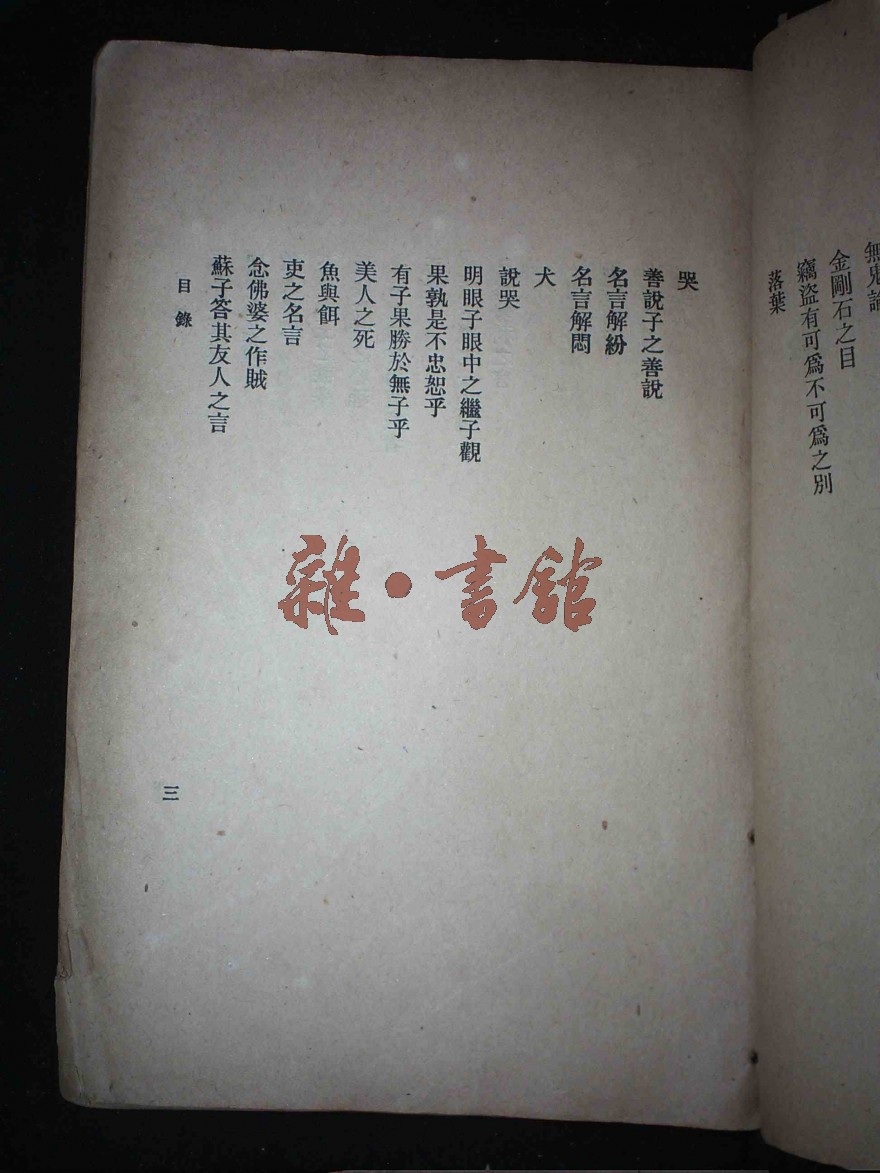 無鬼論
金剛石之目
竊盜有可爲不可爲之別
落葉
哭
善說子之善說
名言解紛
名言解悶
犬
說哭
明眼子眼中之繼子觀
果孰是不忠恕乎
有子果勝於無子乎
美人之死
魚與餌
吏之名言
念佛婆之作賊
蘇子答其友人之言
目錄
三
雜·書館